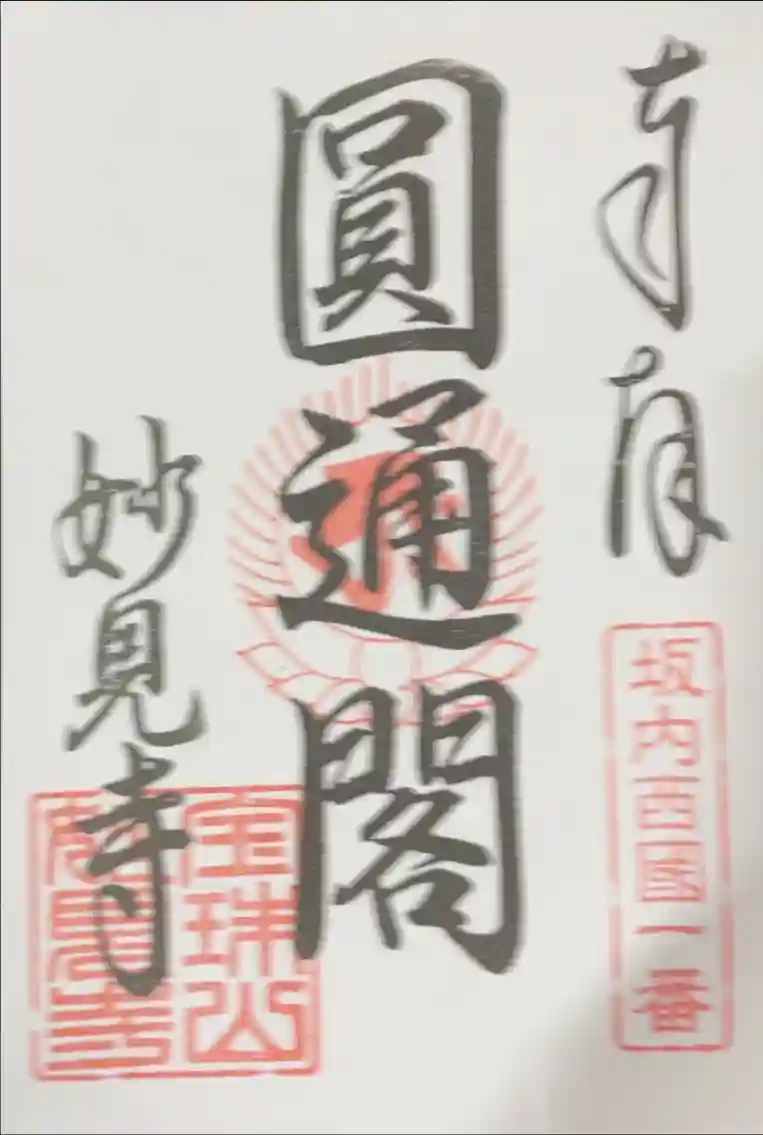 坂内西國一番
圓通閣
妙見寺
宝珠山
妙見寺